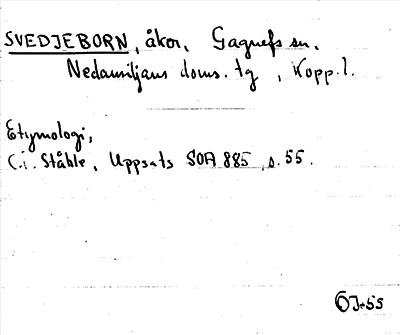 SVEDJEBORN, åkor, Gagnefs sn.
Nedansiljans doms. tg, Kopp. l.
Etymologi,
C.i. Ståhle, Uppsats SOA 885, s. 55.
ÖJ-55